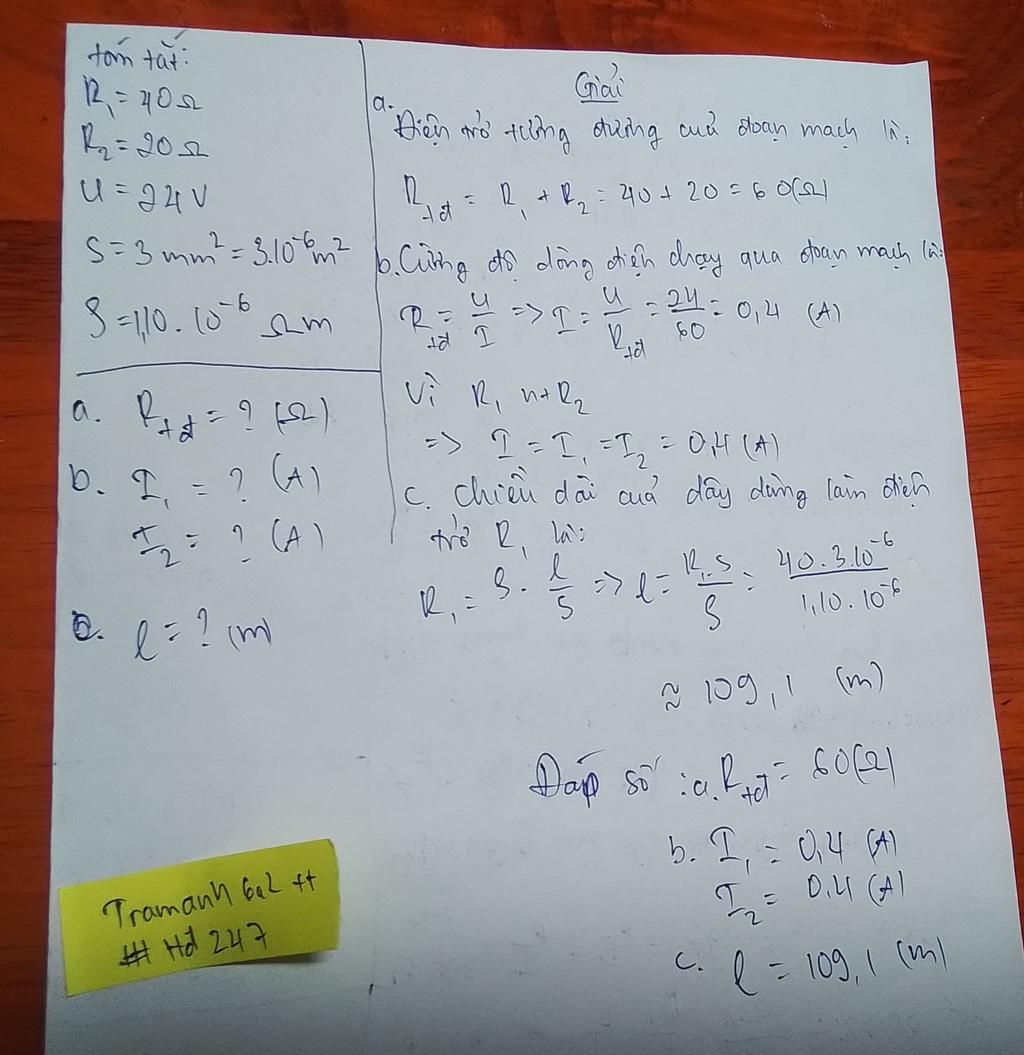 tóm tắt:
R₁ = 40Ω
R₂ = 20Ω
U = 24V
S = 3mm² = 3.10⁻⁶m²
ρ = 1,10.10⁻⁶ Ωm
a. Rtđ = ? (Ω)
b. I₁ = ? (A)
I₂ = ? (A)
c. l = ? (m)
Giải
a.
Điện trở tương đương của đoạn mạch là:
Rtđ = R₁ + R₂ = 40 + 20 = 60(Ω)
b. Cường độ dòng điện chạy qua đoạn mạch là:
Rtđ = U/I => I = U/Rtđ = 24/60 = 0,4 (A)
Vì R₁ nt R₂
=> I = I₁ = I₂ = 0,4 (A)
c. Chiều dài của dây dùng làm điện
trở R₁ là:
R₁ = ρ. l/S => l = R₁.S/ρ = 40.3.10⁻⁶/1,10.10⁻⁶
≈ 109,1 (m)
Đáp số: a. Rtđ = 60(Ω)
b. I₁ = 0,4 (A)
I₂ = 0,4 (A)
c. l = 109,1 (m)
Tramanh6a2tt
# Hd247